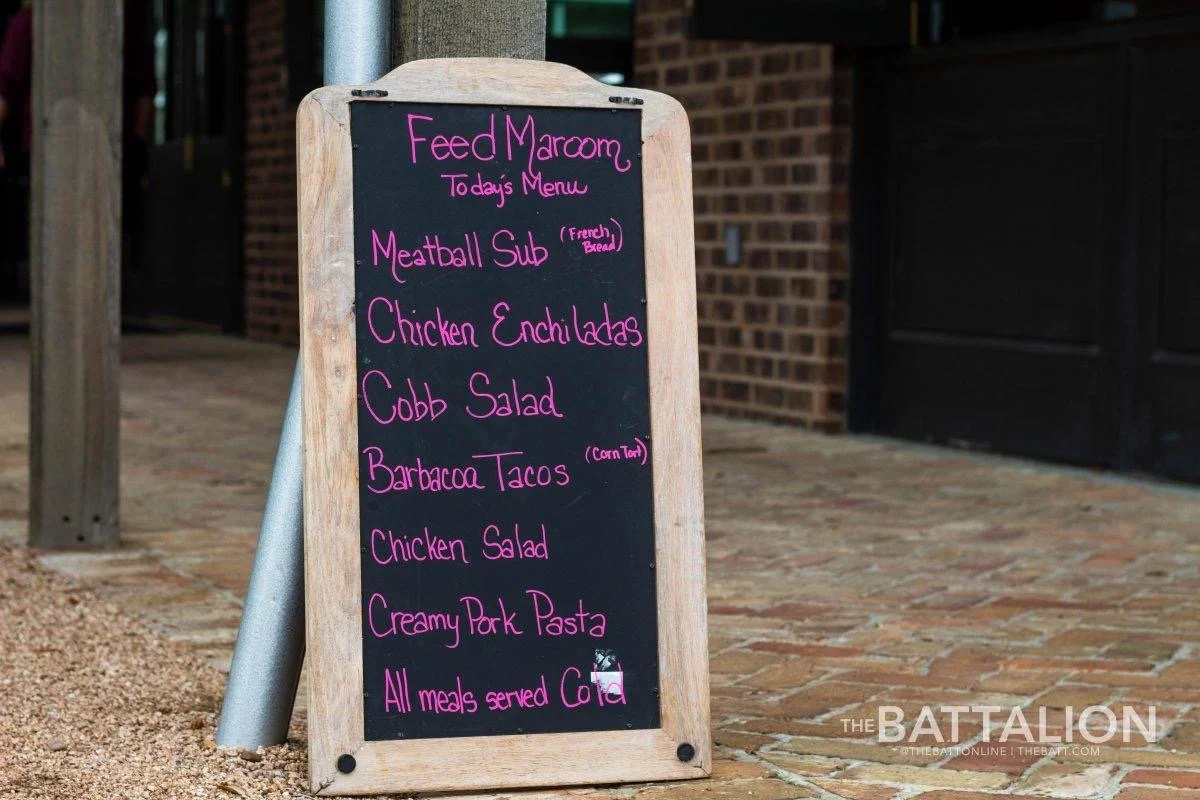 Feed Maroom
Today's Menu
Meatball Sub (French Bread)
Chicken Enchiladas
Cobb Salad
Barbacoa Tacos (Corn Tort)
Chicken Salad
Creamy Pork Pasta
All meals served Cold
THE BATTALION
@THEBATTONLINE | THEBATT.COM